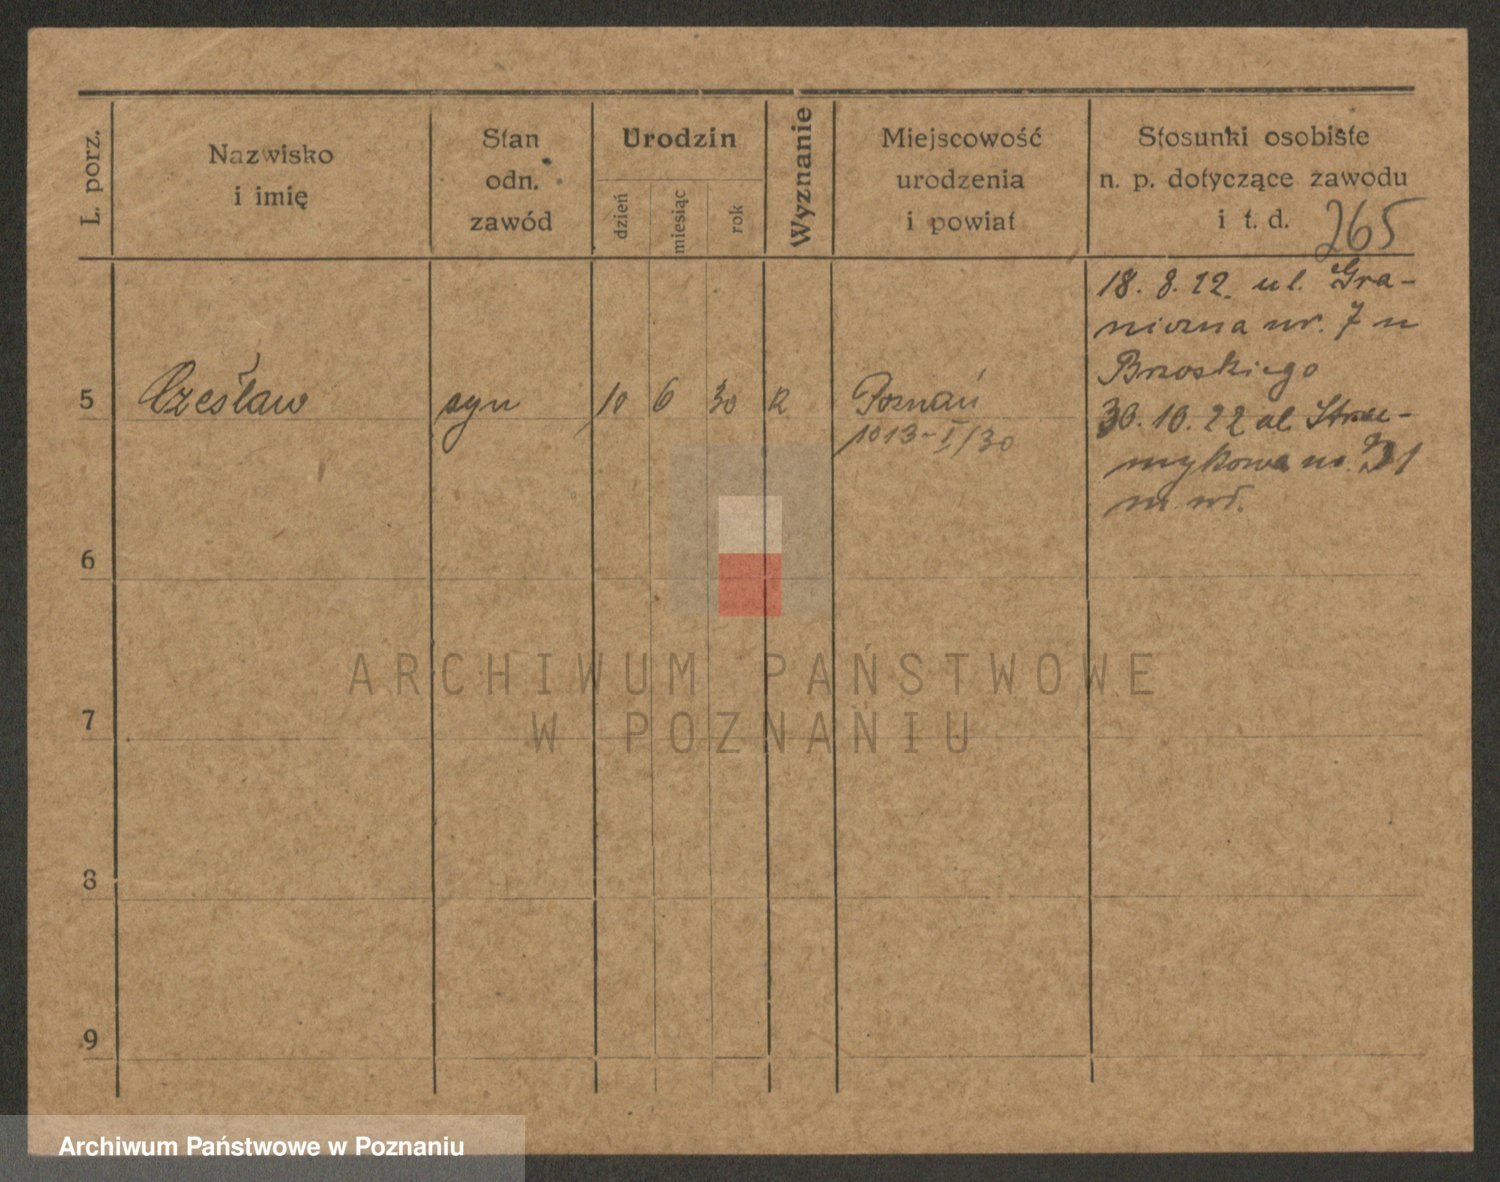 L. porz.
Nazwisko
i imię
Stan
odn.
zawód
Urodzin
dzień
miesiąc
rok
Wyznanie
Miejscowość
urodzenia
i powiat
Stosunki osobiste
n. p. dotyczące zawodu
i t. d. 265
18. 8. 22. ul. Gra-
niczna nr. 7 u
Brzoskiego
5 Czesław syn 10 6 30 R Poznań
1013-I/30
30. 10. 22 ul. Stru-
mykowa nr. 31
m. wł.
6
7
8
9
ARCHIWUM PAŃSTWOWE
W POZNANIU
Archiwum Państwowe w Poznaniu